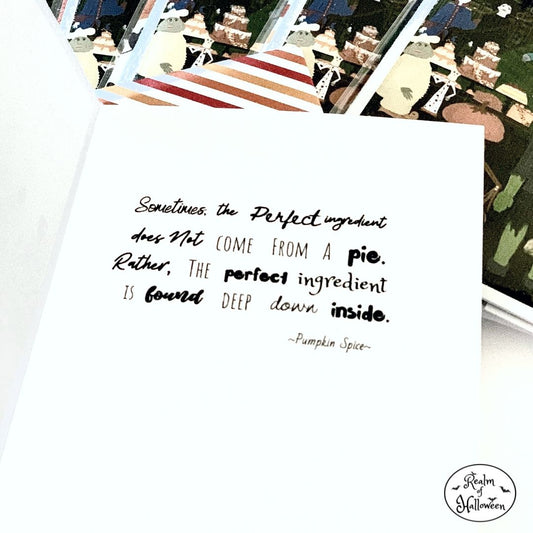 Sometimes, the Perfect ingredient
does Not COME FROM A pie.
Rather, THE perfect ingredient
IS found DEEP down inside.
~Pumpkin Spice~
Realm
of
Halloween